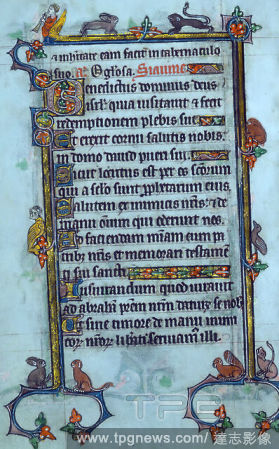 & inhabitare eam facit in tabernaculo
suo. a. O glosa.
Benedictus dominus deus
israel qua visitavit & fecit
redemptionem plebis sue
Et erexit cornu salutis nobis
in domo david pueri sui
Sicut locutus est per os scorum
qui a selo sunt pphetarum eius.
Salutem ex inimicis nris: & de
manu omium qui oderunt nos.
Ad faciendam miam cum pa
tribus nris et memorari testame
ti sui sancti
Iusiurandum quod iuravit
ad abraham prem nrm daturu se nob
Ut sine timore de manu inimi
cor. nror. liberati serviam. illi.
TPG
www.tpgnews.com/達志影像